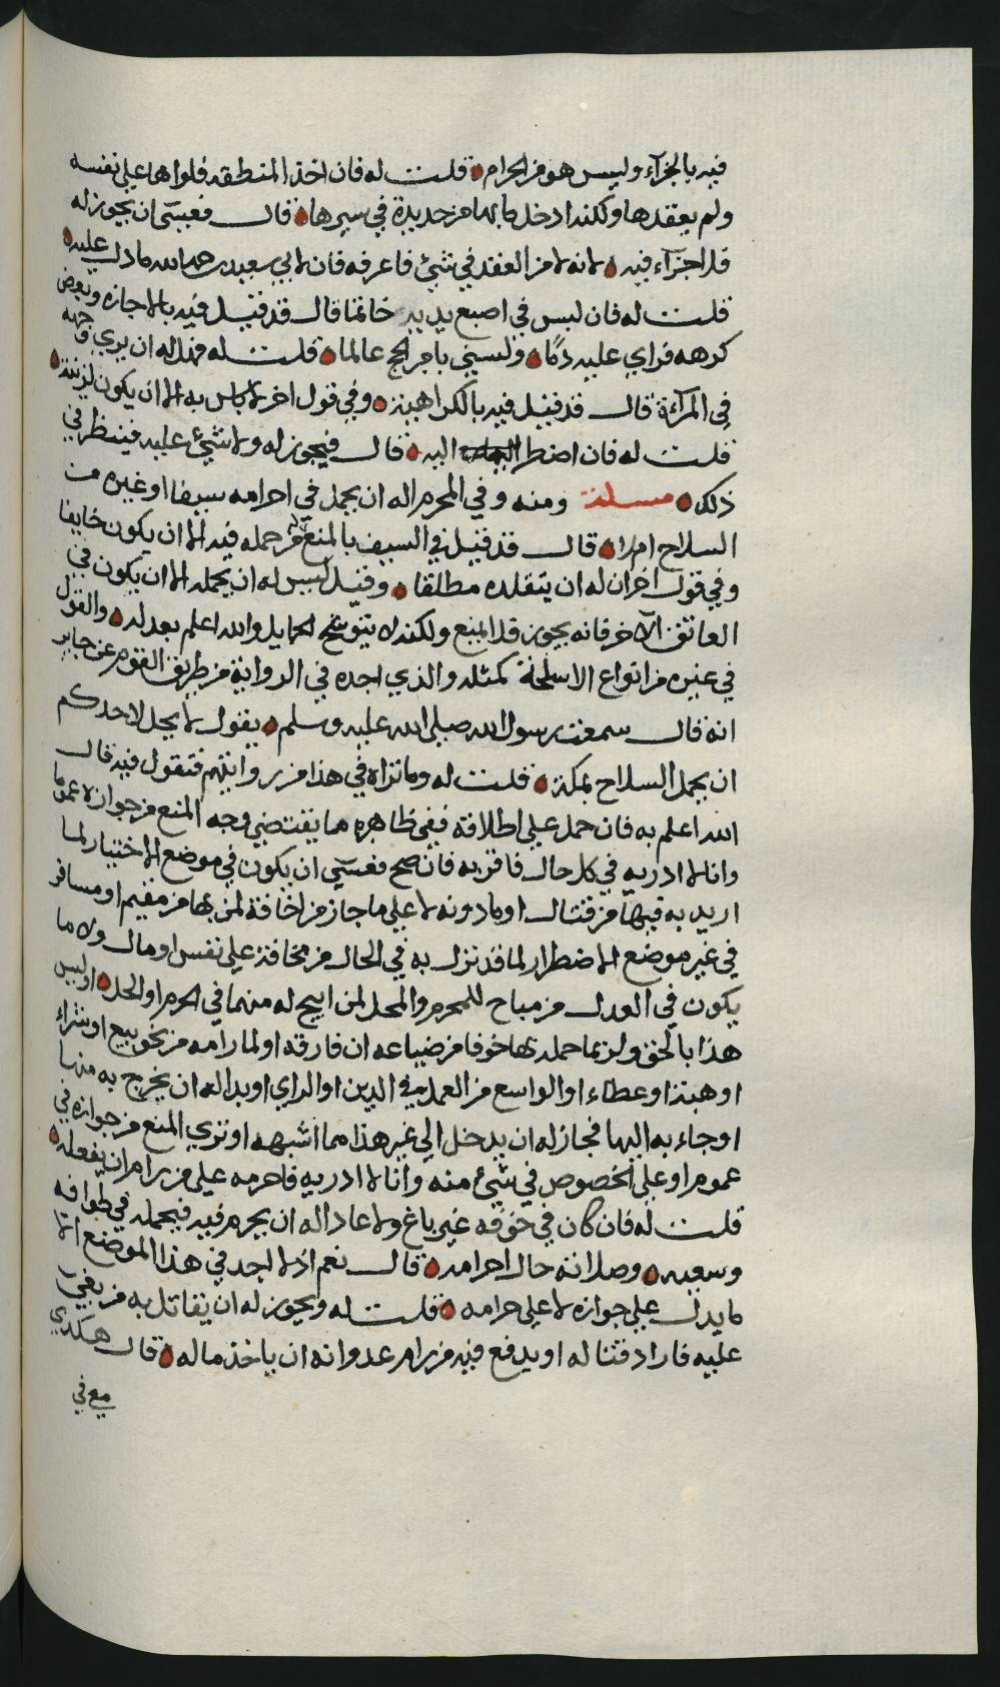 فيه بالجزآء وليس هو من الحرام قلت له فان اخذ المنطقه فلواها على نفسه
ولم يعقدها ولكنه ادخل ما بها من حديدة في سيرها قال فعسى ان يجوز له
فلا جزآء فيه لانه لا من العقد في شئ فاعرفه فان لابي سعيد رحمه الله ما دل عليه
قلت له فان لبس في اصبع يديه خاتما قال قد قيل فيه بالاجازه وبعض
كرهه فراي عليه دمًا ولسني باجر الحج عالما قلت له فهل له ان يري وجهه
في المرآة قال قد قيل فيه بالكراهية وفي قول اخر لا باس به الا ان يكون لزينة
قلت له فان اضطر اليه قال فيجوز له ولا شئ عليه فينظر في
ذلك مسئلة ومنه وفي المحرم اله ان يحمل في احرامه سيفا او غيره من
السلاح ام لا قال قد قيل في السيف بالمنع من حمله فيه الا ان يكون خايفا
وفي قول اخر ان له ان يتقلده مطلقا وقيل ليس له ان يحمله الا ان يكون في
العاتق الآخر فانه يجوز فلا لمنع ولكنه لا يتوشح الحمايل والله اعلم بعدله والقول
في غيره من انواع الاسلحة كمثله والذي اجده في الرواية من طريق القوم عن جابر
انه قال سمعت رسول الله صلى الله عليه وسلم يقول لا يحل لاحدكم
ان يحمل السلاح بمكة قلت له وما تراه في هذا من روايتهم فتقول فيه قال
الله اعلم به فان حمل على اطلاقه ففي ظاهره ما يقتضي وجه المنع من جوازه عموما
وانا لا ادريه في كل حال فاقربه فان صح فعسى ان يكون في موضع الاختيار لما
اريد به فيها من قتال او ما دونه لا على ما جاز من اخافة لمن بها من مقيم او مسافر
في غير موضع الاضطرار لما قد نزل به في الحال من مخافة على نفس او مال ولا ما
يكون في العدل من مباح للمحرم والمحل لمن ابيح له منهما في الحرم او الحل او ليس
هذا بالحق ولربما حمله بها خوفا من ضياعه ان فارقه او لما رامه من نحو بيع او شراء
او هبة او عطاء او الواسع من العمل به في الدين او الراي او بدا له ان يخرج به منها
او جاء به اليها فجاز له ان يدخل الي غير هذا مما اشبهه او تري المنع من جوازه في
عموم او على الخصوص في شئ منه وانا لا ادريه فاحرمه على من رام ان يفعله
قلت له فان كان في خوفه غير باغ ولا عاد اله ان يحرم فيه فيحمله في طوافه
وسعيه وصلاته حال احرامه قال نعم اذ لا اجد في هذا الموضع الا
ما يدل على جوازه لا على حرامه قلت له ويجوز له ان يقاتل به من بغي
عليه فاراد قتاله او يدفع فيه من رام عدوانه ان ياخذ ماله قال هكذي
مع في